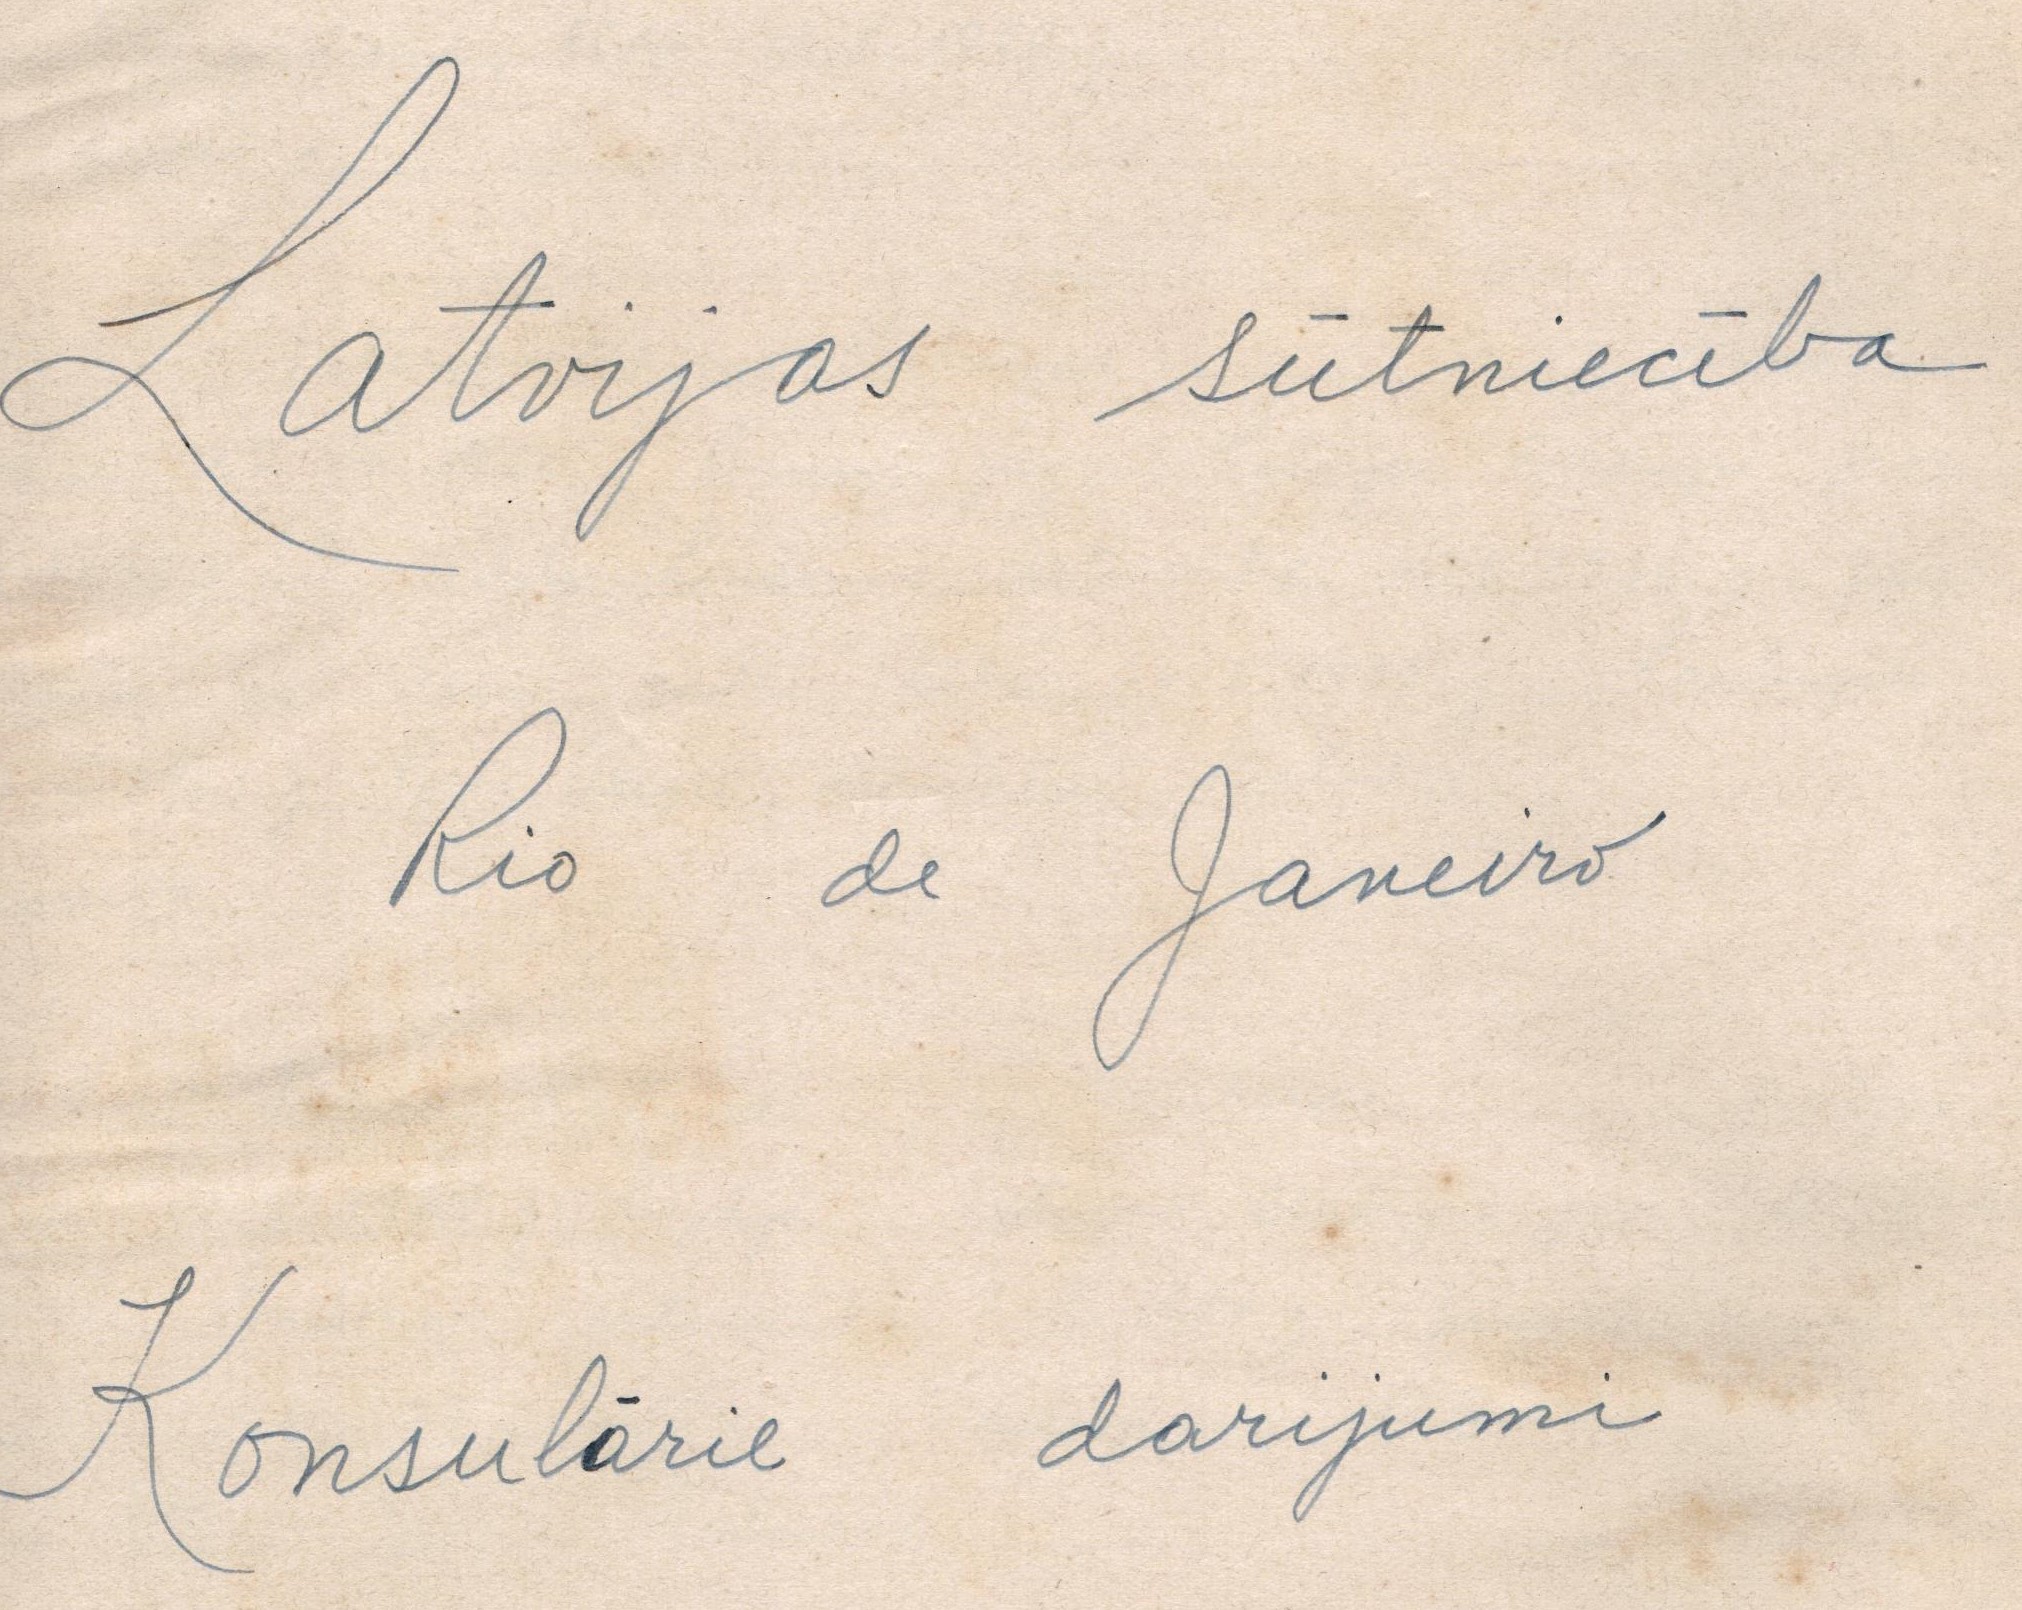 Latvijas sūtniecība
Rio de Janeiro
Konsulārie darijumi